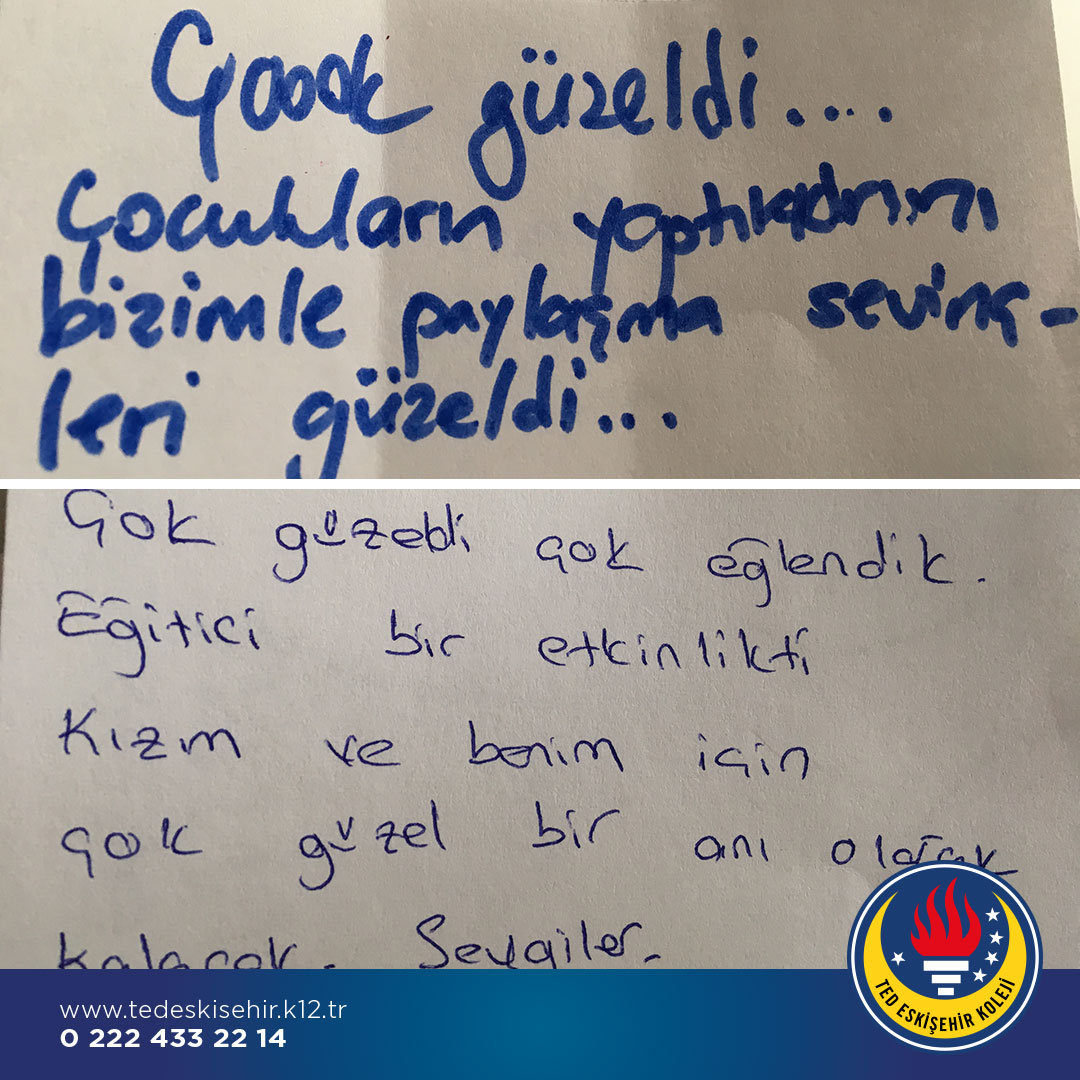 Çoook güzeldi....
Çocukların yaptıklarını
bizimle paylaşma sevinç-
leri güzeldi...
Çok güzeldi çok eğlendik.
Eğitici bir etkinlikti
Kızım ve benim için
çok güzel bir anı olarak
kalacak. Sevgiler.
www.tedeskisehir.k12.tr
0 222 433 22 14
TED ESKİŞEHİR KOLEJİ